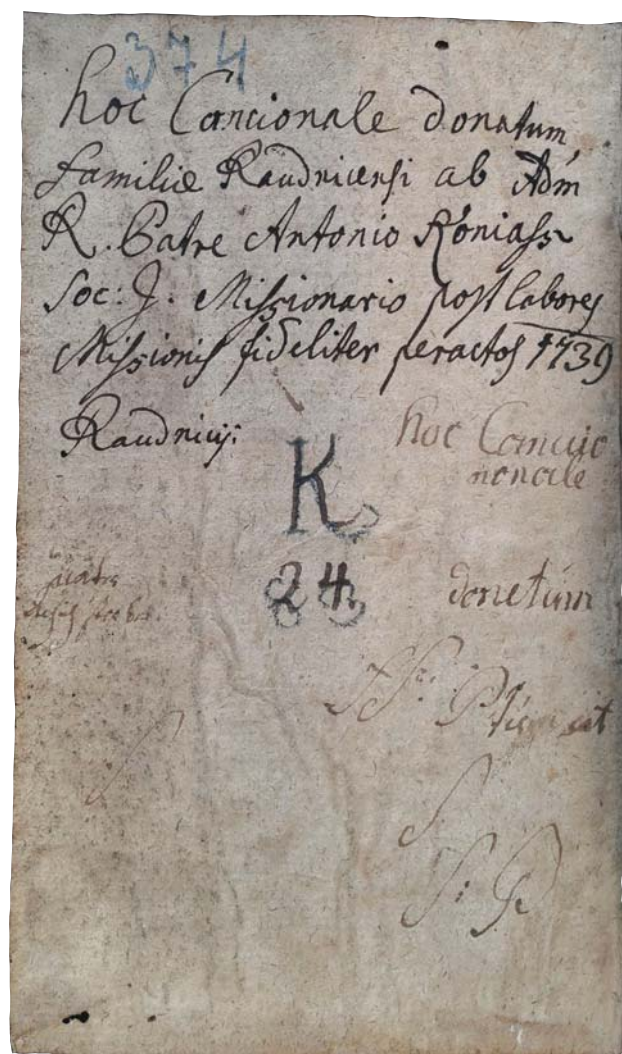 374
hoc Cancionale donatum
familiæ Raudnicensi ab Adm
R. Patre Antonio Koniass
Soc: J. Missionario post labores
Missionis fideliter peractos 1739
Raudnicij:
hoc Cancio
nonale
K
24
donetum
S
S: P